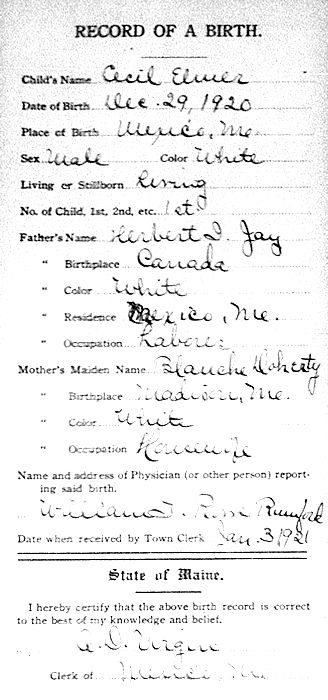 RECORD OF A BIRTH.
Child's Name Cecil Elmer
Date of Birth Dec. 29, 1920
Place of Birth Mexico, Me.
Sex Male Color White
Living or Stillborn Living
No. of Child, 1st, 2nd, etc. 1st
Father's Name Herbert I. Jay
" Birthplace Canada
" Color White
" Residence Mexico, Me.
" Occupation Laborer
Mother's Maiden Name Blanche Doherty
" Birthplace Madison, Me.
" Color White
" Occupation Housewife
Name and address of Physician (or other person) report-
ing said birth.
William T. Rowe Rumford
Date when received by Town Clerk Jan. 3 1921
State of Maine.
I hereby certify that the above birth record is correct
to the best of my knowledge and belief.
Clerk of Mexico, Me.